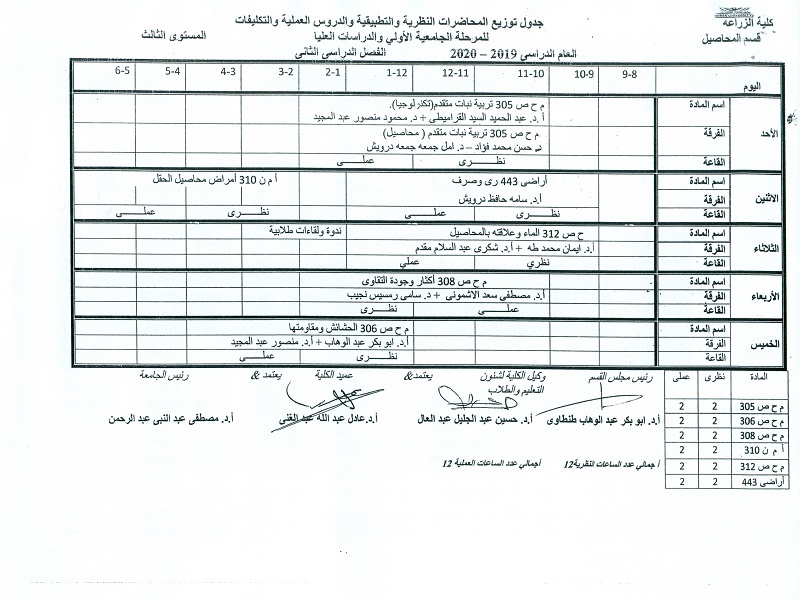 كلية الزراعة
قسم المحاصيل
جدول توزيع المحاضرات النظرية والتطبيقية والدروس العملية والتكليفات
للمرحلة الجامعية الأولي والدراسات العليا
المستوى الثالث
العام الدراسى 2019 – 2020 الفصل الدراسى الثانى
اليوم 9-8 10-9 11-10 12-11 1-12 2-1 3-2 4-3 5-4 6-5
الأحد
اسم المادة م ح ص 305 تربية نبات متقدم(تكنرلوجيا).
أ .د. عبد الحميد السيد القراميطى + د. محمود منصور عبد المجيد
الفرقة م ح ص 305 تربية نبات متقدم ( محاصيل)
د. حسن محمد فؤاد – د. امل جمعه جمعه درويش
القاعة نظرى عملى
الاثنين
اسم المادة أراضى 443 رى وصرف أ م ن 310 أمراض محاصيل الحقل
الفرقة أ.د. سامه حافظ درويش
القاعة نظرى عملى نظرى عملى
الثلاثاء
اسم المادة ح ص 312 الماء وعلاقته بالمحاصيل ندوة ولقاءات طلابية
الفرقة أ.د. ايمان محمد طه + أ.د. شكرى عبد السلام مقدم
القاعة نظري عملي
الأربعاء
اسم المادة م ح ص 308 أكثار وجودة التقاوى
الفرقة أ.د. مصطفى سعد الاشمونى + د. سامى رمسيس نجيب
القاعة عملى نظرى
الخميس
اسم المادة م ح ص 306 الحشائش ومقاومتها
الفرقة أ.د. ابو بكر عبد الوهاب + أ.د. منصور عبد المجيد
القاعة نظرى عملى
المادة نظرى عملى
م ح ص 305 2 2
م ح ص 306 2 2
م ح ص 308 2 2
أ م ن 310 2 2
م ح ص 312 2 2
أراضى 443 2 2
رئيس مجلس القسم وكيل الكلية لشئون يعتمد& عميد الكلية يعتمد & رئيس الجامعة
التعليم والطلاب
أ.د. ابو بكر عبد الوهاب طنطاوى أ.د. حسين عبد الجليل عبد العال أ.د.عادل عبد الله عبد الغنى أ.د. مصطفى عبد النبى عبد الرحمن
أ جمالي عدد الساعات النظرية12 أجمالي عدد الساعات العملية 12